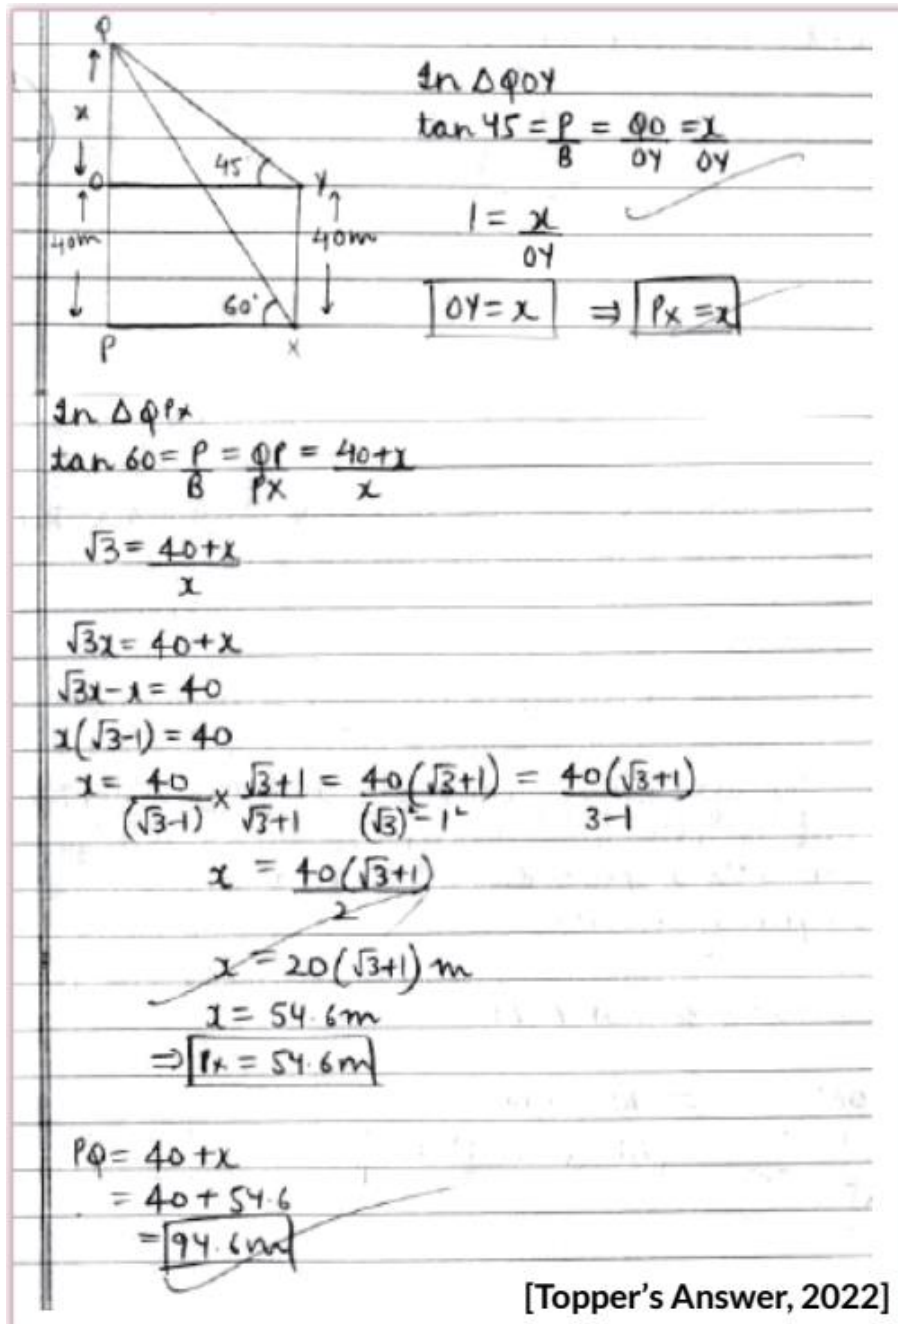 Q
x
O
45°
Y
40m
40m
60°
P
X
In ΔQOY
tan 45 = P/B = QO/OY = x/OY
1 = x/OY
OY = x ⇒ PX = x
In ΔQPX
tan 60 = P/B = QP/PX = 40+x/x
√3 = 40+x/x
√3x = 40+x
√3x-x = 40
x(√3-1) = 40
x = 40/(√3-1) × √3+1/√3+1 = 40(√3+1)/(√3)²-1² = 40(√3+1)/3-1
x = 40(√3+1)/2
x = 20(√3+1) m
x = 54.6m
⇒ PX = 54.6m
PQ = 40+x
= 40+54.6
= 94.6m
[Topper's Answer, 2022]